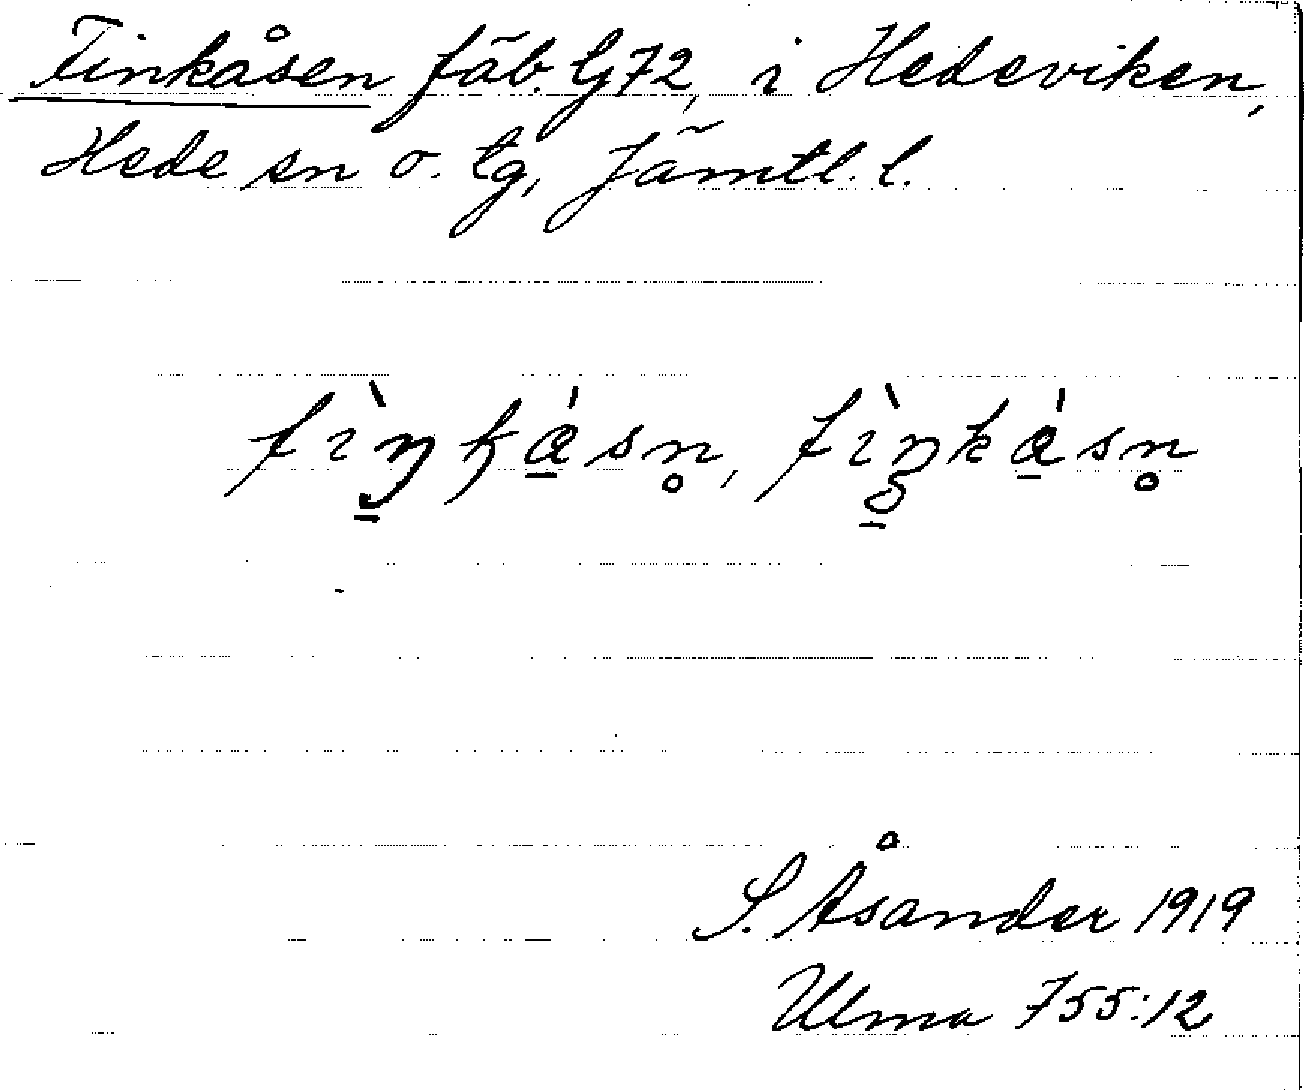 Finkåsen fäb. G72, i Hedeviken,
Hede sn o. tg, Jämtl. l.
S. Åsander 1919
Ulma 755:12